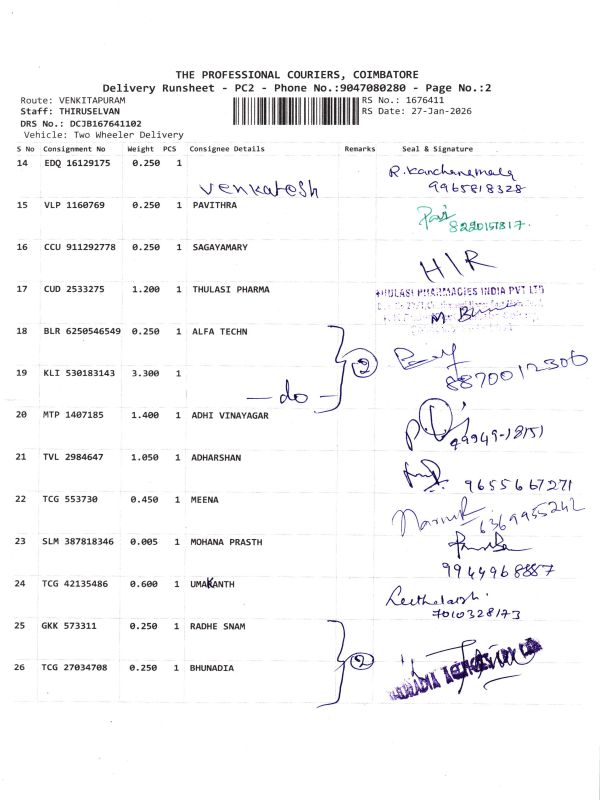 THE PROFESSIONAL COURIERS, COIMBATORE
Delivery Runsheet - PC2 - Phone No.:9047080280 - Page No.:2
Route: VENKITAPURAM
RS No.: 1676411
Staff: THIRUSELVAN
RS Date: 27-Jan-2026
DRS No.: DCJB167641102
Vehicle: Two Wheeler Delivery
S No Consignment No Weight PCS Consignee Details Remarks Seal & Signature
14 EDQ 16129175 0.250 1
R. Kanchanamala
Venkatesh 9965818328
15 VLP 1160769 0.250 1 PAVITHRA
16 CCU 911292778 0.250 1 SAGAYAMARY
H/R
17 CUD 2533275 1.200 1 THULASI PHARMA
THULASI PHARMACIES INDIA PVT LTD
18 BLR 6250546549 0.250 1 ALFA TECHN
2
19 KLI 530183143 3.300 1
8870012300
— do —
20 MTP 1407185 1.400 1 ADHI VINAYAGAR
99949-18151
21 TVL 2984647 1.050 1 ADHARSHAN
9655667271
22 TCG 553730 0.450 1 MEENA
6369955242
23 SLM 387818346 0.005 1 MOHANA PRASTH
9944968887
24 TCG 42135486 0.600 1 UMAKANTH
7010328173
25 GKK 573311 0.250 1 RADHE SNAM
2
26 TCG 27034708 0.250 1 BHUNADIA